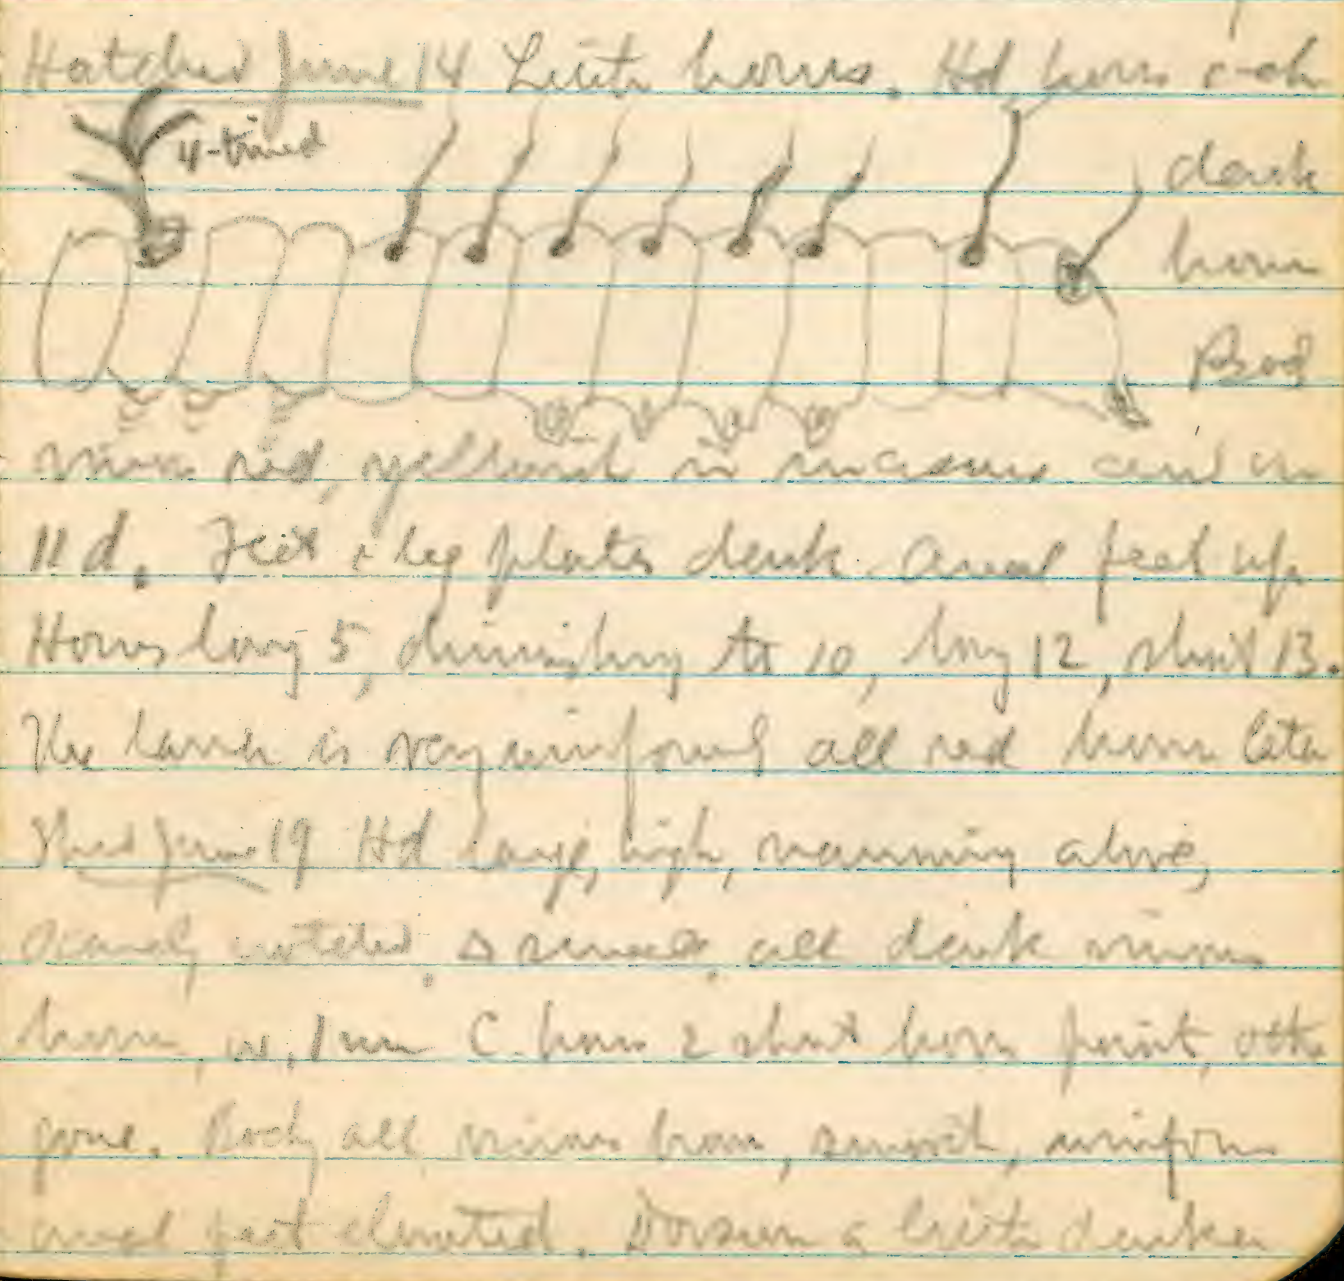 Hatched June 14 horns. Hd horn
4-tined
dark
brown
Bod
red, yellowish in incisures and in
11 d. Feet & leg plates dark. Anal feet up
Horns long 5, diminishing to 10, long 12, short 13.
The larva is very uniform all red brown later
June 19 Hd large, high, narrowing above,
scarcely notched. small, all dark
brown, w. 1 mm C. horn 2 short horn point, oth
gone. Body all brown, smooth, uniform
anal feet elevated. Dorsum a little darker